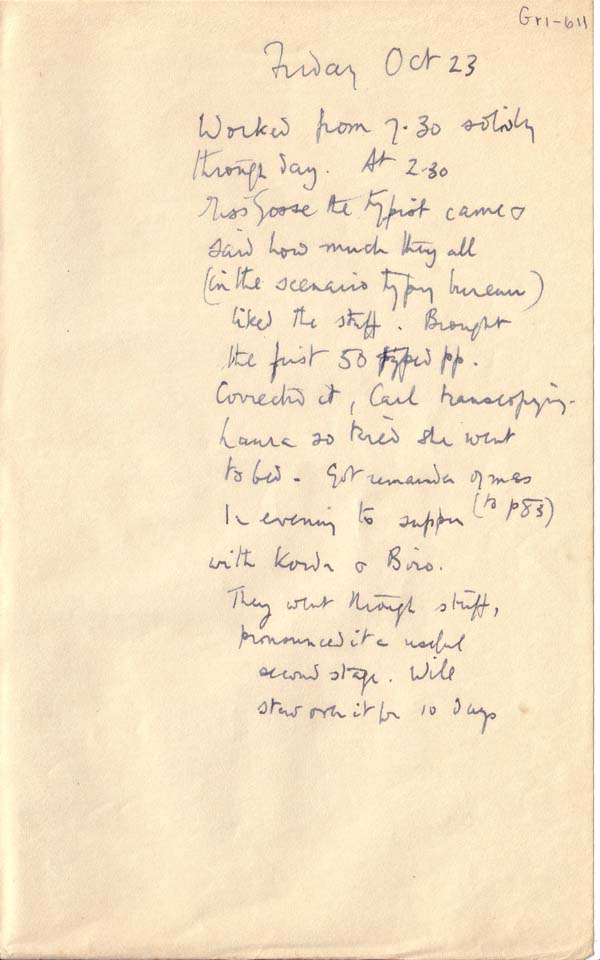 Gr1-611
Friday Oct 23
Worked from 7.30 solidly
through day. At 2.30
Miss Goose the typist came &
said how much they all
(in the scenario typing bureau)
liked the stuff. Brought
the first 50 typed pp.
Corrected it, Carl transcopying.
Laura so tired she went
to bed - Got remainder of mss
(to p83)
In evening to supper
with Korda & Biro.
They went through stuff,
pronounced it a useful
second stage. Will
stew over it for 10 days